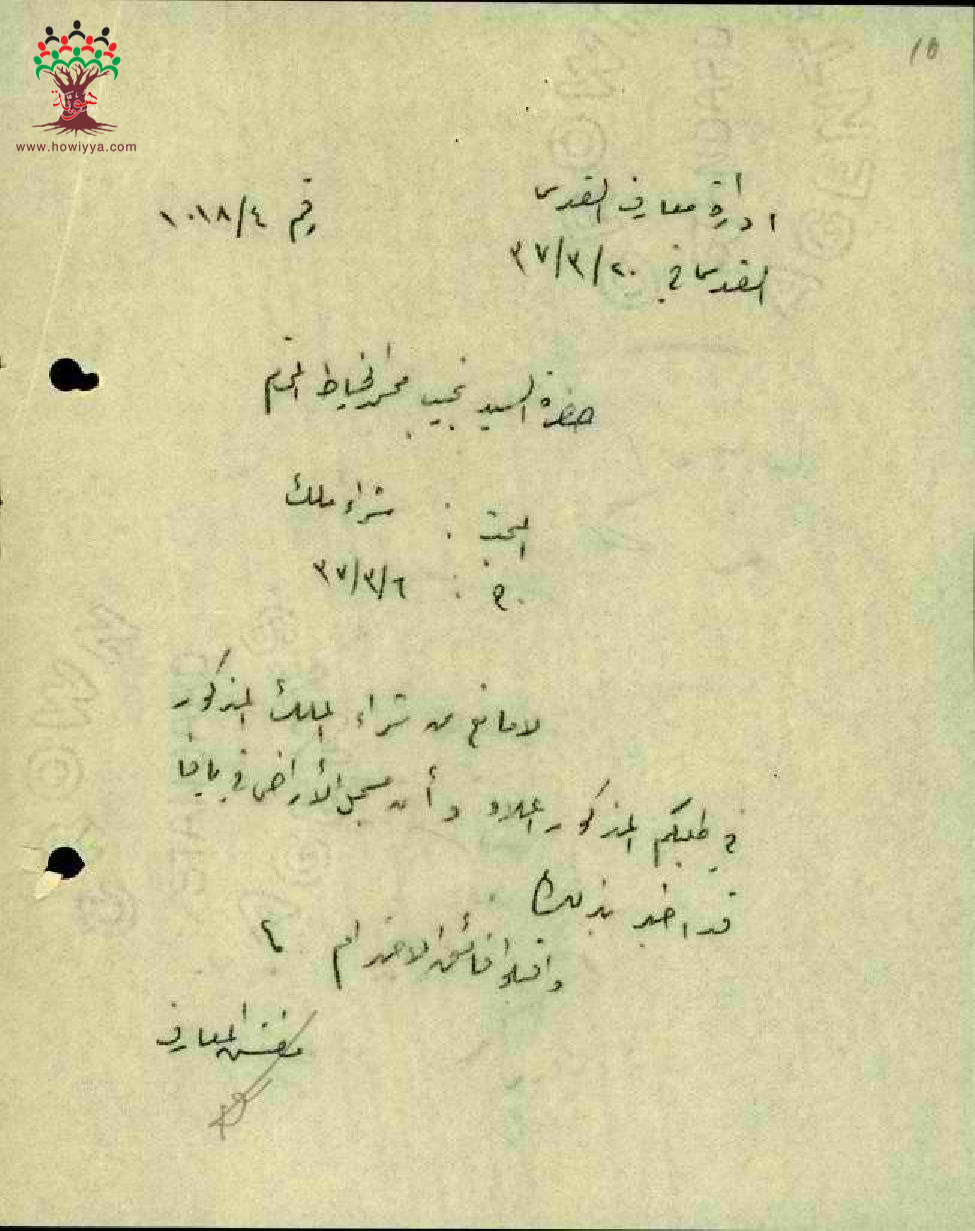 هوية
www.howiyya.com
10
ادارة معارف القدس
رقم ١٠١٨/٤
القدس في ٢٠/٣/٣٧
حضرة السيد نجيب محمد الخياط المحترم
المبحث : شراء ملك
: ٣٧/٣/٦
لا مانع من شراء الملك المذكور
في طلبكم المذكور اعلاه وأن مسجل الأراضي في يافا
قد اخبر بذلك
واقبلوا فائق الاحترام
مفتش المعارف